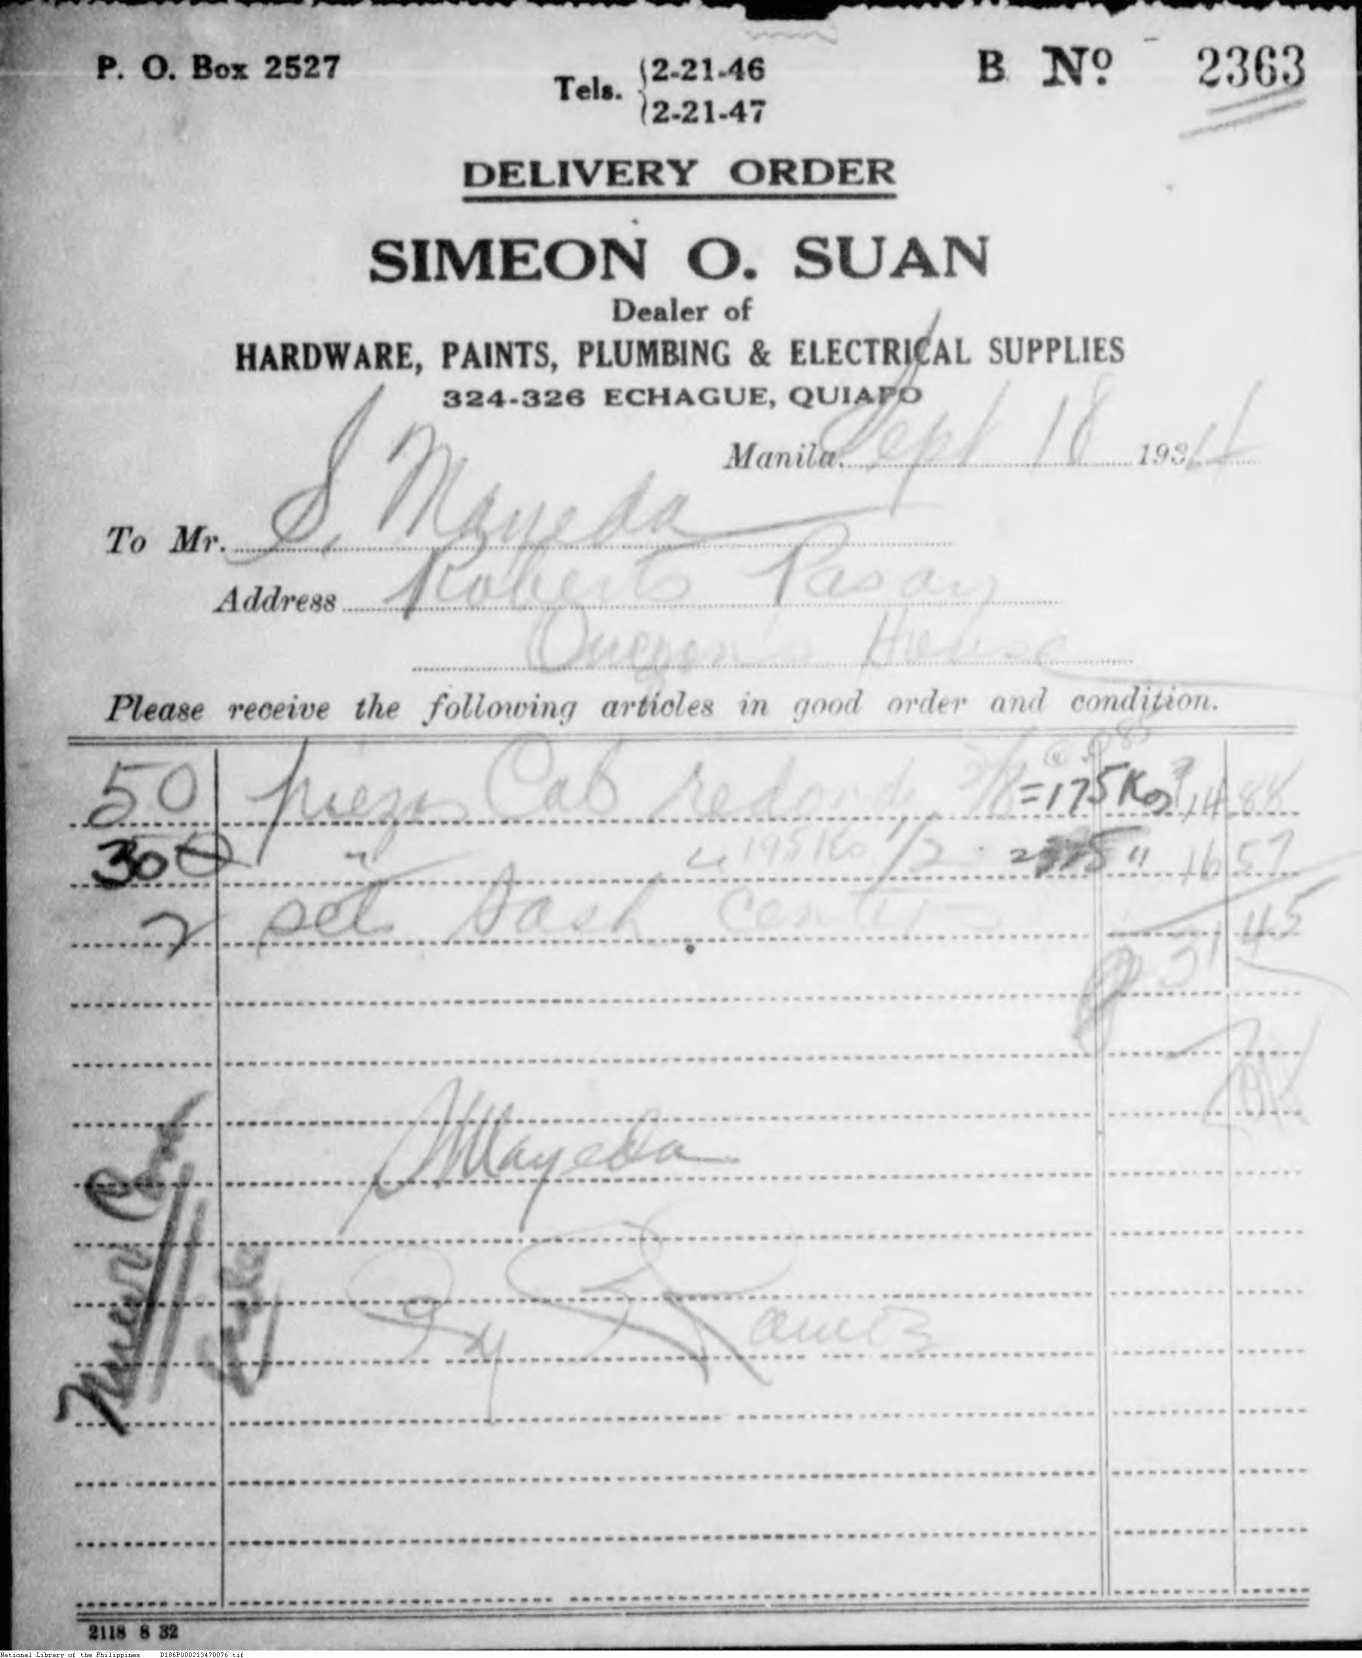 P. O. Box 2527
Tels. 2-21-46
2-21-47
B No 2363
DELIVERY ORDER
SIMEON O. SUAN
Dealer of
HARDWARE, PAINTS, PLUMBING & ELECTRICAL SUPPLIES
324-326 ECHAGUE, QUIAPO
Manila, Sept 18 1934
To Mr. S. Mayeda
Address Roberts Pasay
Quezon's House
Please receive the following articles in good order and condition.
50 piezas Cab redondo 3/8 = 175 Kos 14.88
30 " " 195 Ko 1/2 16 57
2 set Sash
31 45
SMayeda
By Ramez
2118 8 32
National Library of the Philippines D186P000213470076.tif